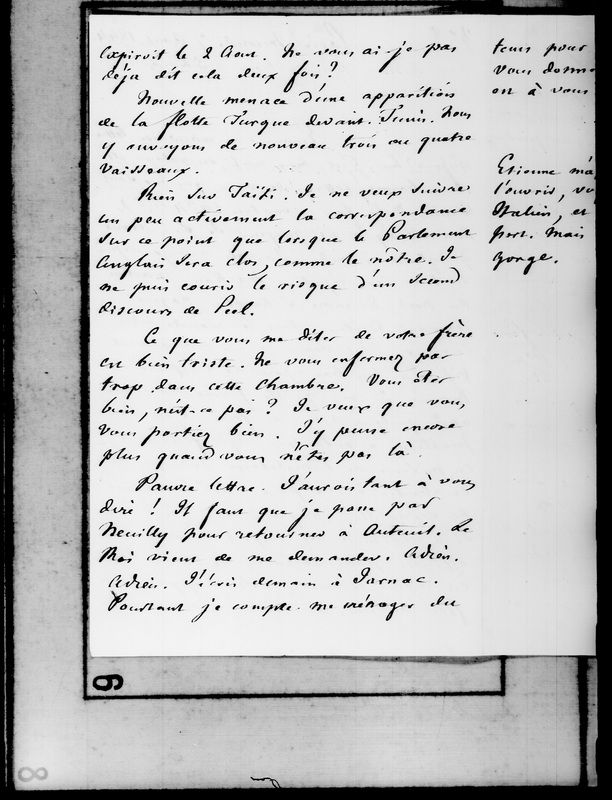 Expiroit le 2 Aout. Ne vous ai-je pas
déja dit cela deux fois?
Nouvelle menace d'une apparition
de la flotte Turque devant Tunis. Nous
y envoyons de nouveau trois ou quatre
vaisseaux.
Rien sur Taïti. Je ne veux suivre
un peu activement la correspondance
sur ce point que lorsque le Parlement
Anglais sera clos, comme le nôtre. Je
ne puis courir le risque d'un second
discours de Peel.
Ce que vous me dites de votre frère
est bien triste. Ne vous enfermez pas
trop dans cette chambre. Vous êtes
bien, n'est-ce pas? Je veux que vous
vous portiez bien. J'y pense encore
plus quand vous n'êtes pas là.
Pauvre lettre. J'aurois tant à vous
dire! Il faut que je passe par
Neuilly pour retourner à Auteuil. Le
Roi vient de me demander. Adieu.
Adieu. J'écris demain à Jarnac.
Pourtant je compte me ménager du
tems pour
vous donne
est à vous
Etienne m'a
l'ouvris, vo
Italien, et
port. Mais
gorge.
6
8